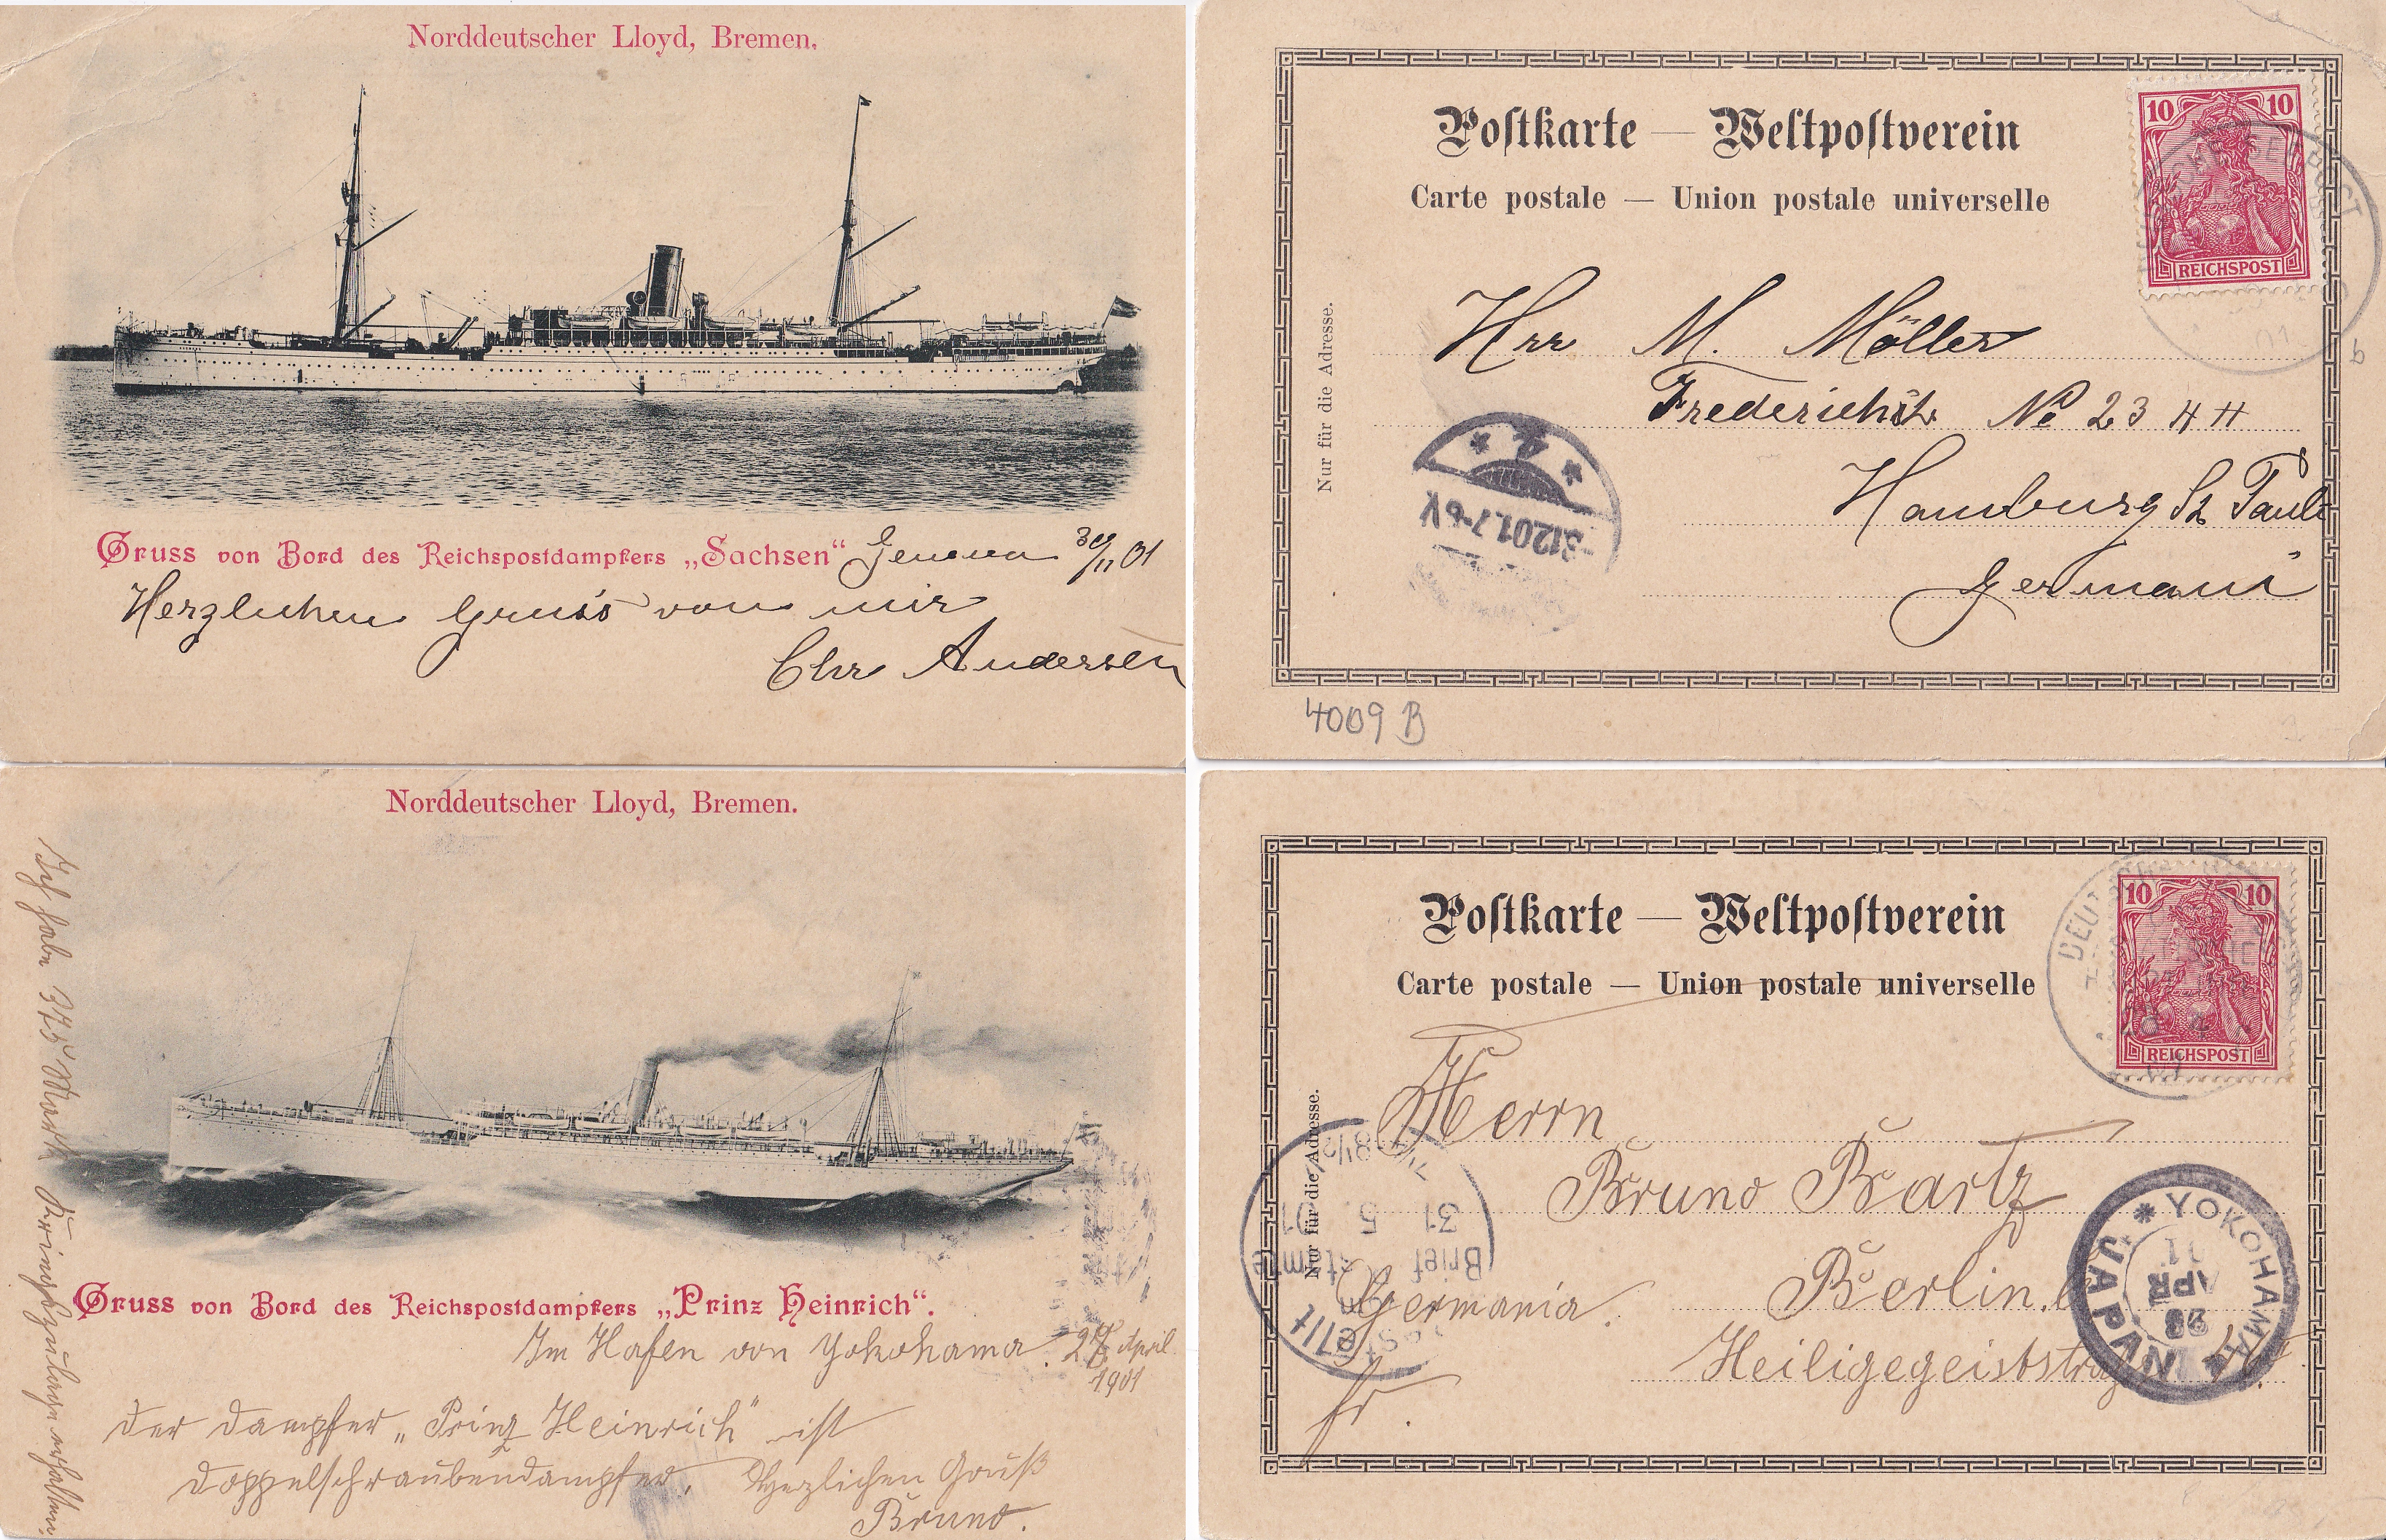 Norddeutscher Lloyd, Bremen.
Gruss von Bord des Reichspostdampfers „Sachsen“
Genua 30/11 01
Herzlichen Gruss von mir
Chr Andersen
Postkarte — Weltpostverein
Carte postale — Union postale universelle
Nur für die Adresse.
10 10
REICHSPOST
Herr M. Möller
Frederichstr No 23 4 H
Hamburg St Pauli
Germani
3.12.01.7-8V
4009 B
Norddeutscher Lloyd, Bremen.
Gruss von Bord des Reichspostdampfers „Prinz Heinrich“.
Im Hafen von Yokohama. 27 April
1901
Der Dampfer „Prinz Heinrich“ ist
Doppelschraubendampfer. Herzlichen Gruß
Bruno.
Ich habe 375 Mark Kriegszulage erhalten.
Postkarte — Weltpostverein
Carte postale — Union postale universelle
Nur für die Adresse.
10 10
REICHSPOST
Herrn
Bruno Bartz
Berlin.
Germania.
Heiligegeiststr
fr.
YOKOHAMA
JAPAN
APR
31 5
Bestellt